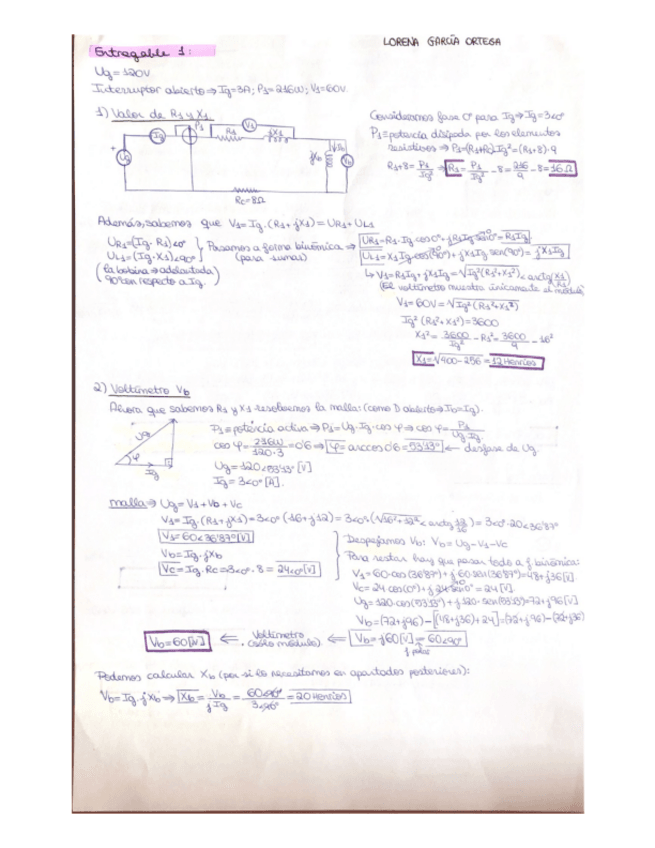 LORENA GARCÍA ORTEGA
Entregable 1:
Ug = 120V
Interruptor abierto ⇒ Ig=3A; P1=216W; V1=60V.
1) Valor de R1 y X1
Consideramos fase 0° para Ig ⇒ Ig=3∠0°
P1=potencia disipada por los elementos
resistivos ⇒ P1=(R1+Rc)Ig²=(R1+8)·9
R1+8= P1/Ig² ⇒ R1= P1/Ig² -8= 216/9 -8=16Ω
Ug
Ig
P1
R1
V1
jX1
Vb
Rc=8Ω
Además, sabemos que V1=Ig·(R1+jX1)=UR1+UL1
UR1=(Ig·R1)∠0°
UL1=(Ig·X1)∠90°
(la bobina ⇒ adelantada
90° con respecto a Ig.)
Pasamos a forma binómica ⇒
(para sumar)
UR1=R1·Ig cos0°+jR1Ig sen0°=R1Ig.
UL1=X1Ig·cos(90°)+jX1Ig sen(90°)=jX1Ig
↳ V1=R1Ig+jX1Ig=√Ig²(R1²+X1²) ∠ arctg(X1/R1)
(El voltímetro muestra únicamente el módulo)
V1=60V=√Ig²(R1²+X1²)
Ig²(R1²+X1²)=3600
X1²= 3600/Ig² -R1²= 3600/9 -16²
X1=√400-256=12 Henrios
2) Voltímetro Vb
Ahora que sabemos R1 y X1 resolvemos la malla: (como D abierto ⇒ Ib=Ig).
Ug
φ
Ig
P1=potencia activa ⇒ P1=Ug·Ig·cos φ ⇒ cos φ= P1/Ug·Ig
cos φ= 216W/120·3 =0'6 ⇒ φ=arccos 0'6=53'13° ← desfase de Ug.
Ug=120∠53'13° [V]
Ig=3∠0° [A].
malla ⇒ Ug=V1+Vb+Vc
V1=Ig·(R1+jX1)=3∠0°(16+j12)=3∠0°·(√16²+12² ∠ arctg 12/16)=3∠0°·20∠36'87°
V1=60∠36'87° [V]
Vb=Ig·jXb
Vc=Ig·Rc=3∠0°·8=24∠0° [V]
Despejamos Vb: Vb=Ug-V1-Vc
Para restar hay que pasar todo a f. binómica:
V1=60·cos(36'87°)+j·60·sen(36'87°)=48+j36[V].
Vc=24·cos(0°)+j·24·sen0°=24[V].
Ug=120·cos(53'13°)+j·120·sen(53'13°)=72+j96[V]
Vb=(72+j96)-[(48+j36)+24]=(72+j96)-(72+j36)
Vb=60[V] ⇐ Voltímetro (sólo módulo) ⇐ Vb=j60[V]=60∠90°
f. polar
Podemos calcular Xb (por si lo necesitamos en apartados posteriores):
Vb=Ig·jXb ⇒ Xb= Vb/jIg = 60∠90°/3∠90° =20 Henrios